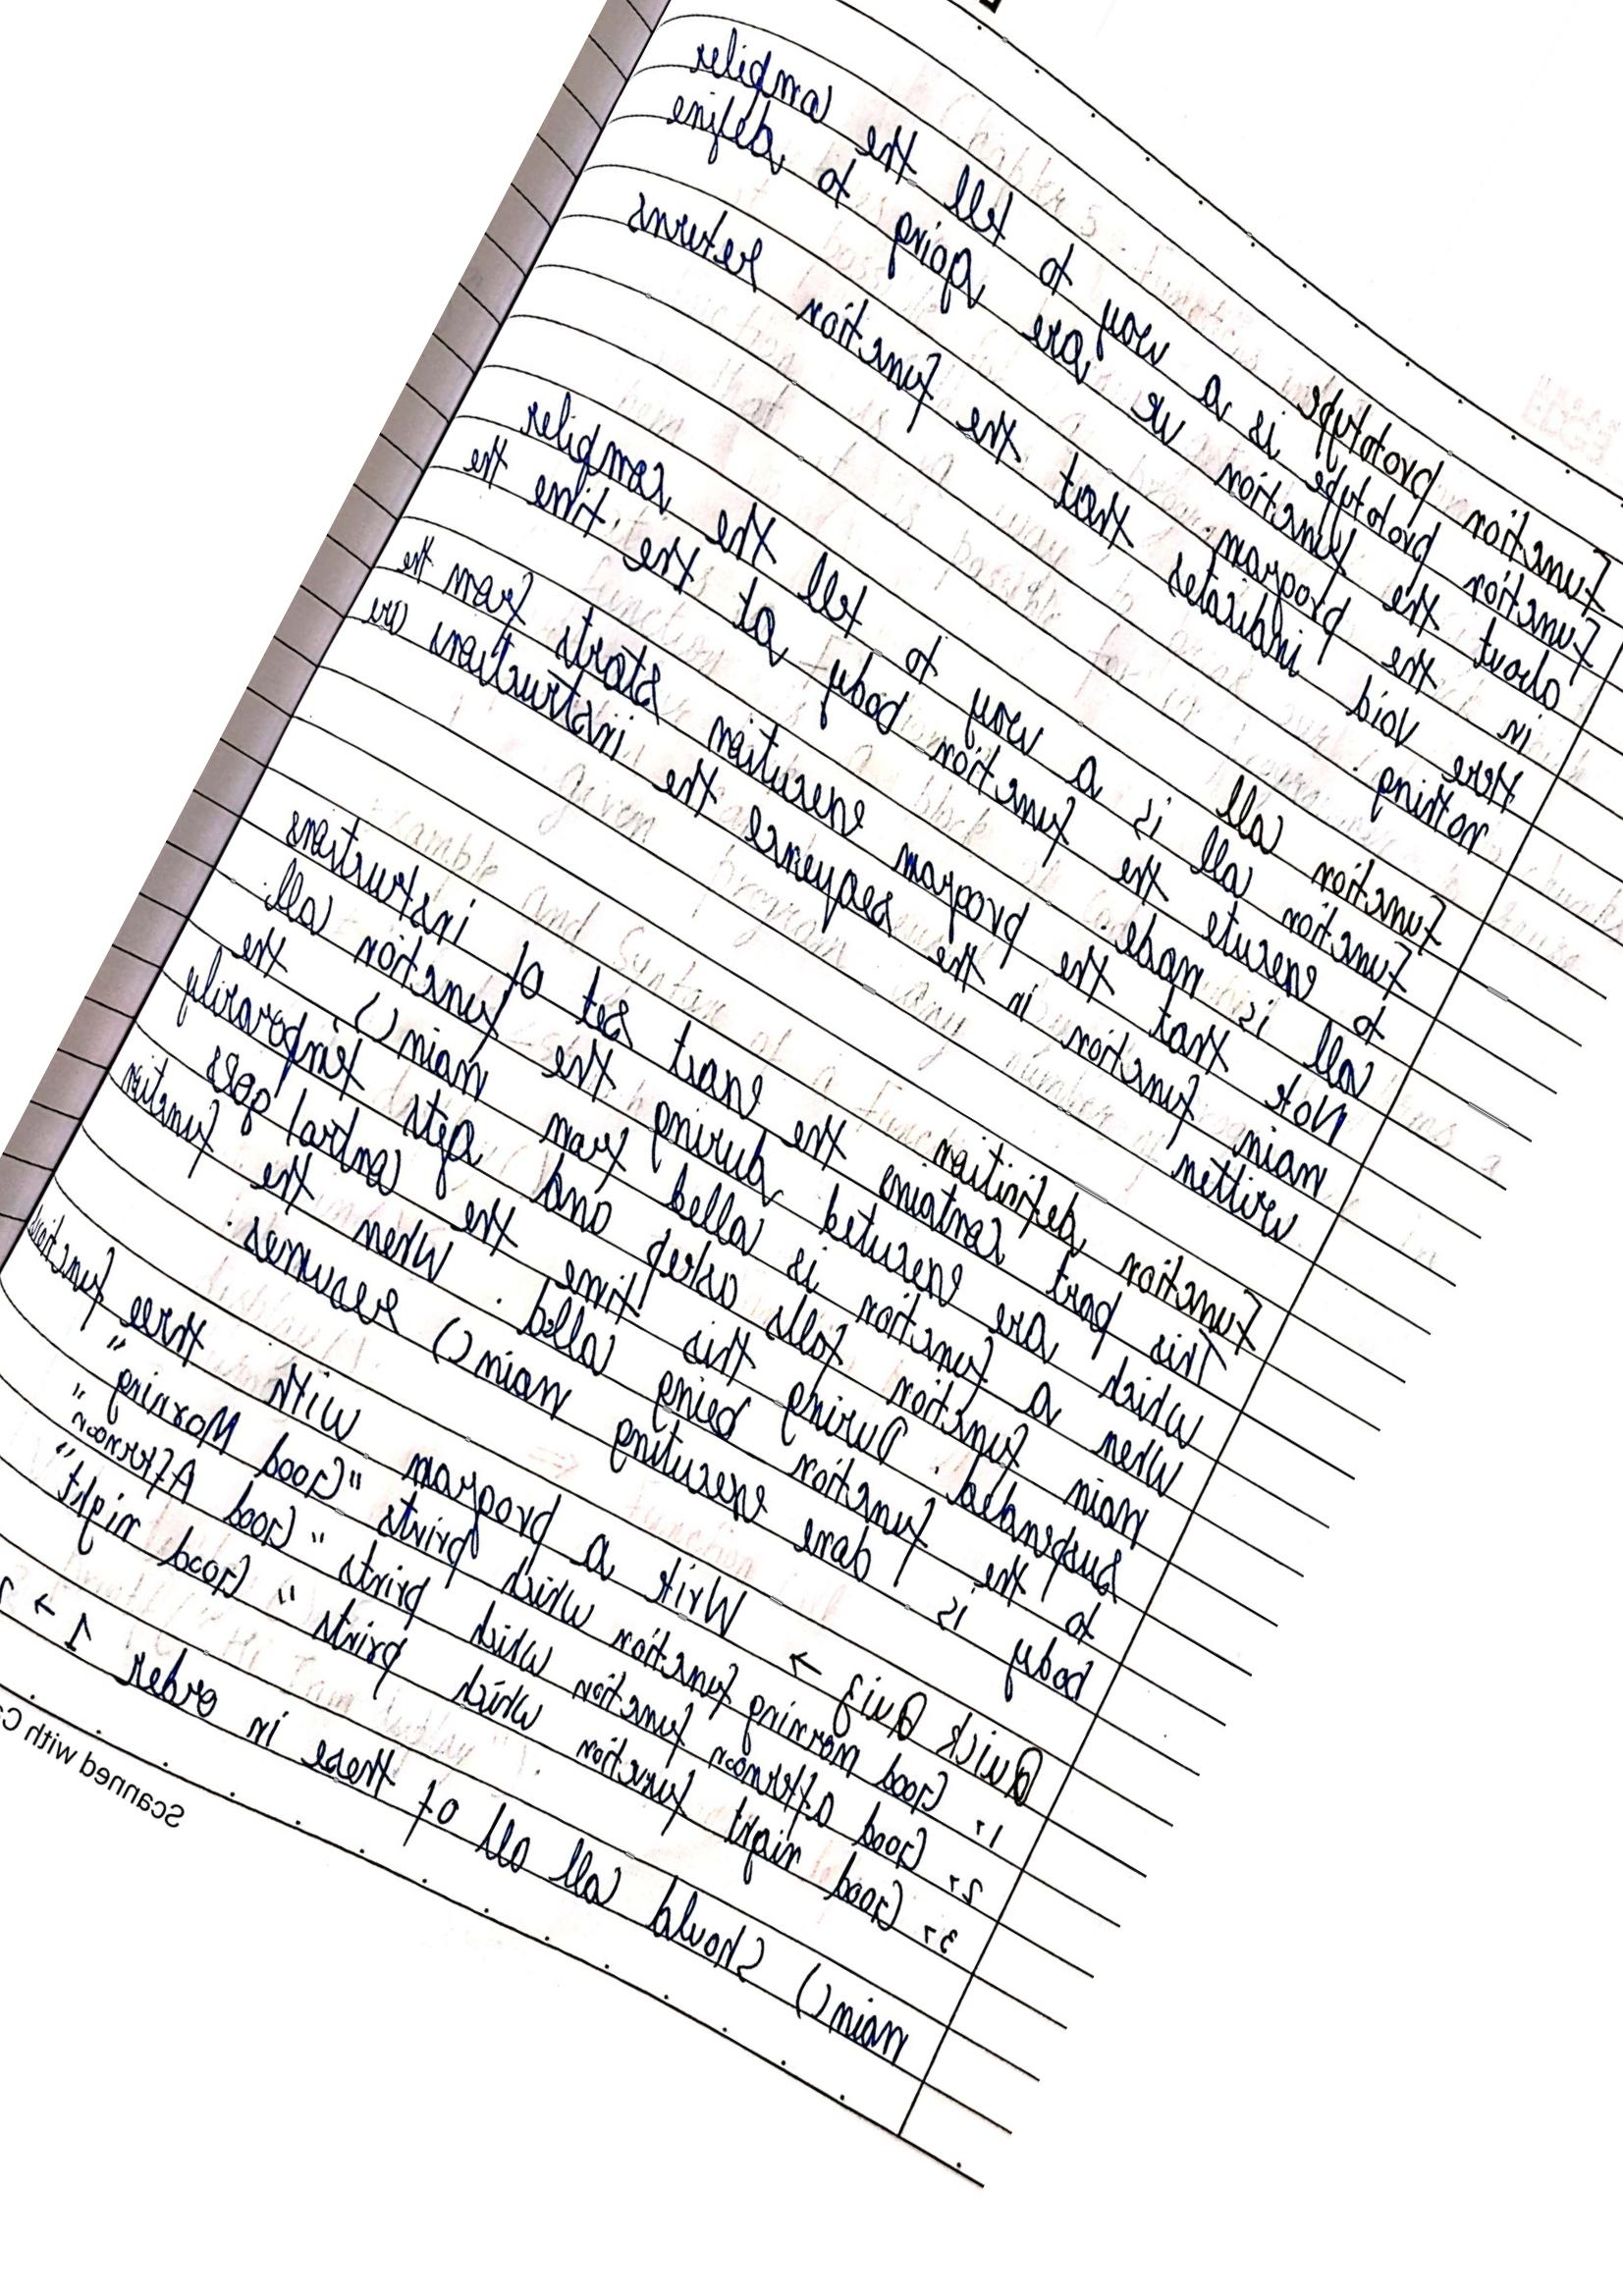 Function prototype
Function prototype is a way to tell the compiler
about the function we are going to define
in the program
Here void indicates that the function returns
nothing.
Function call
Function call is a way to tell the compiler
to execute the function body at the time the
call is made.
Note that the program execution starts from the
main function in the sequence the instructions are
written
Function definition
This part contains the exact set of instructions
which are executed during the function call.
When a function is called from main() the
main function falls asleep and gets temporarily
suspended. During this time the control goes
to the function being called. When the function
body is done executing main() resumes.
Quick Quiz → Write a program with three functions
1, Good morning function which prints "Good Morning"
2, Good afternoon function which prints "Good Afternoon"
3, Good night function which prints "Good night"
main() should call all of these in order 1 → 2
Scanned with